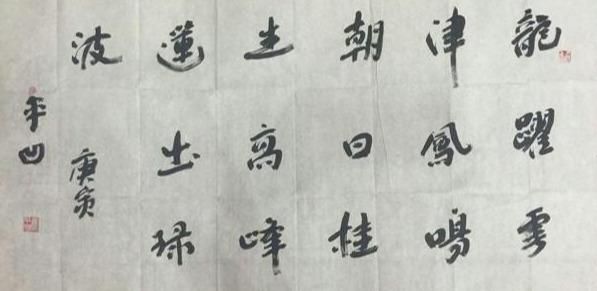 龍躍雲
津鳳鳴
朝日桂
生高峰
蓮出琭
波
庚寅
平凹